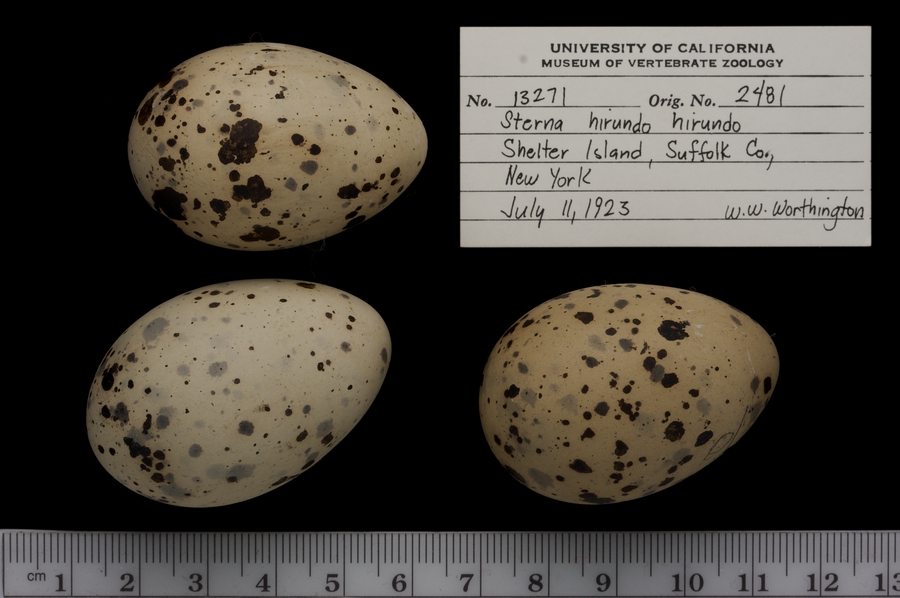 UNIVERSITY OF CALIFORNIA
MUSEUM OF VERTEBRATE ZOOLOGY
No. 13271 Orig. No. 2481
Sterna hirundo hirundo
Shelter Island, Suffolk Co.,
New York
July 11, 1923 W.W. Worthington
cm 1 2 3 4 5 6 7 8 9 10 11 12 13